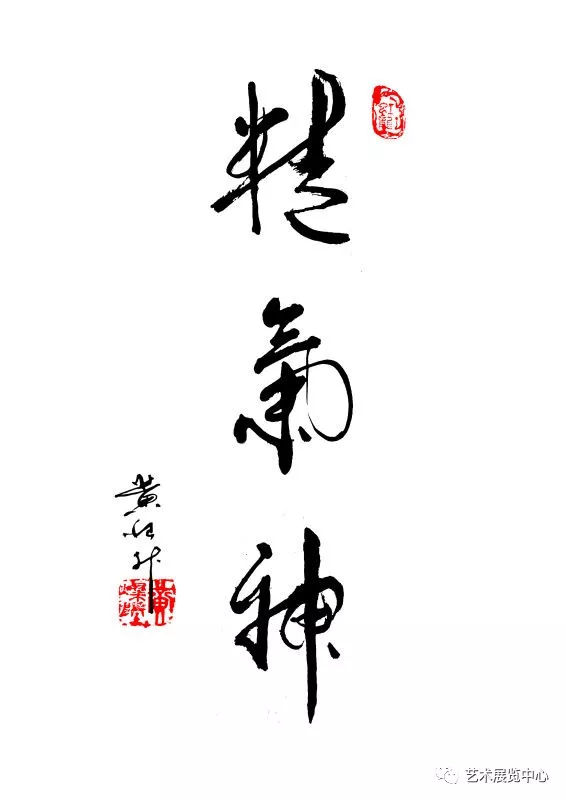 精氣神
黄
艺术展览中心